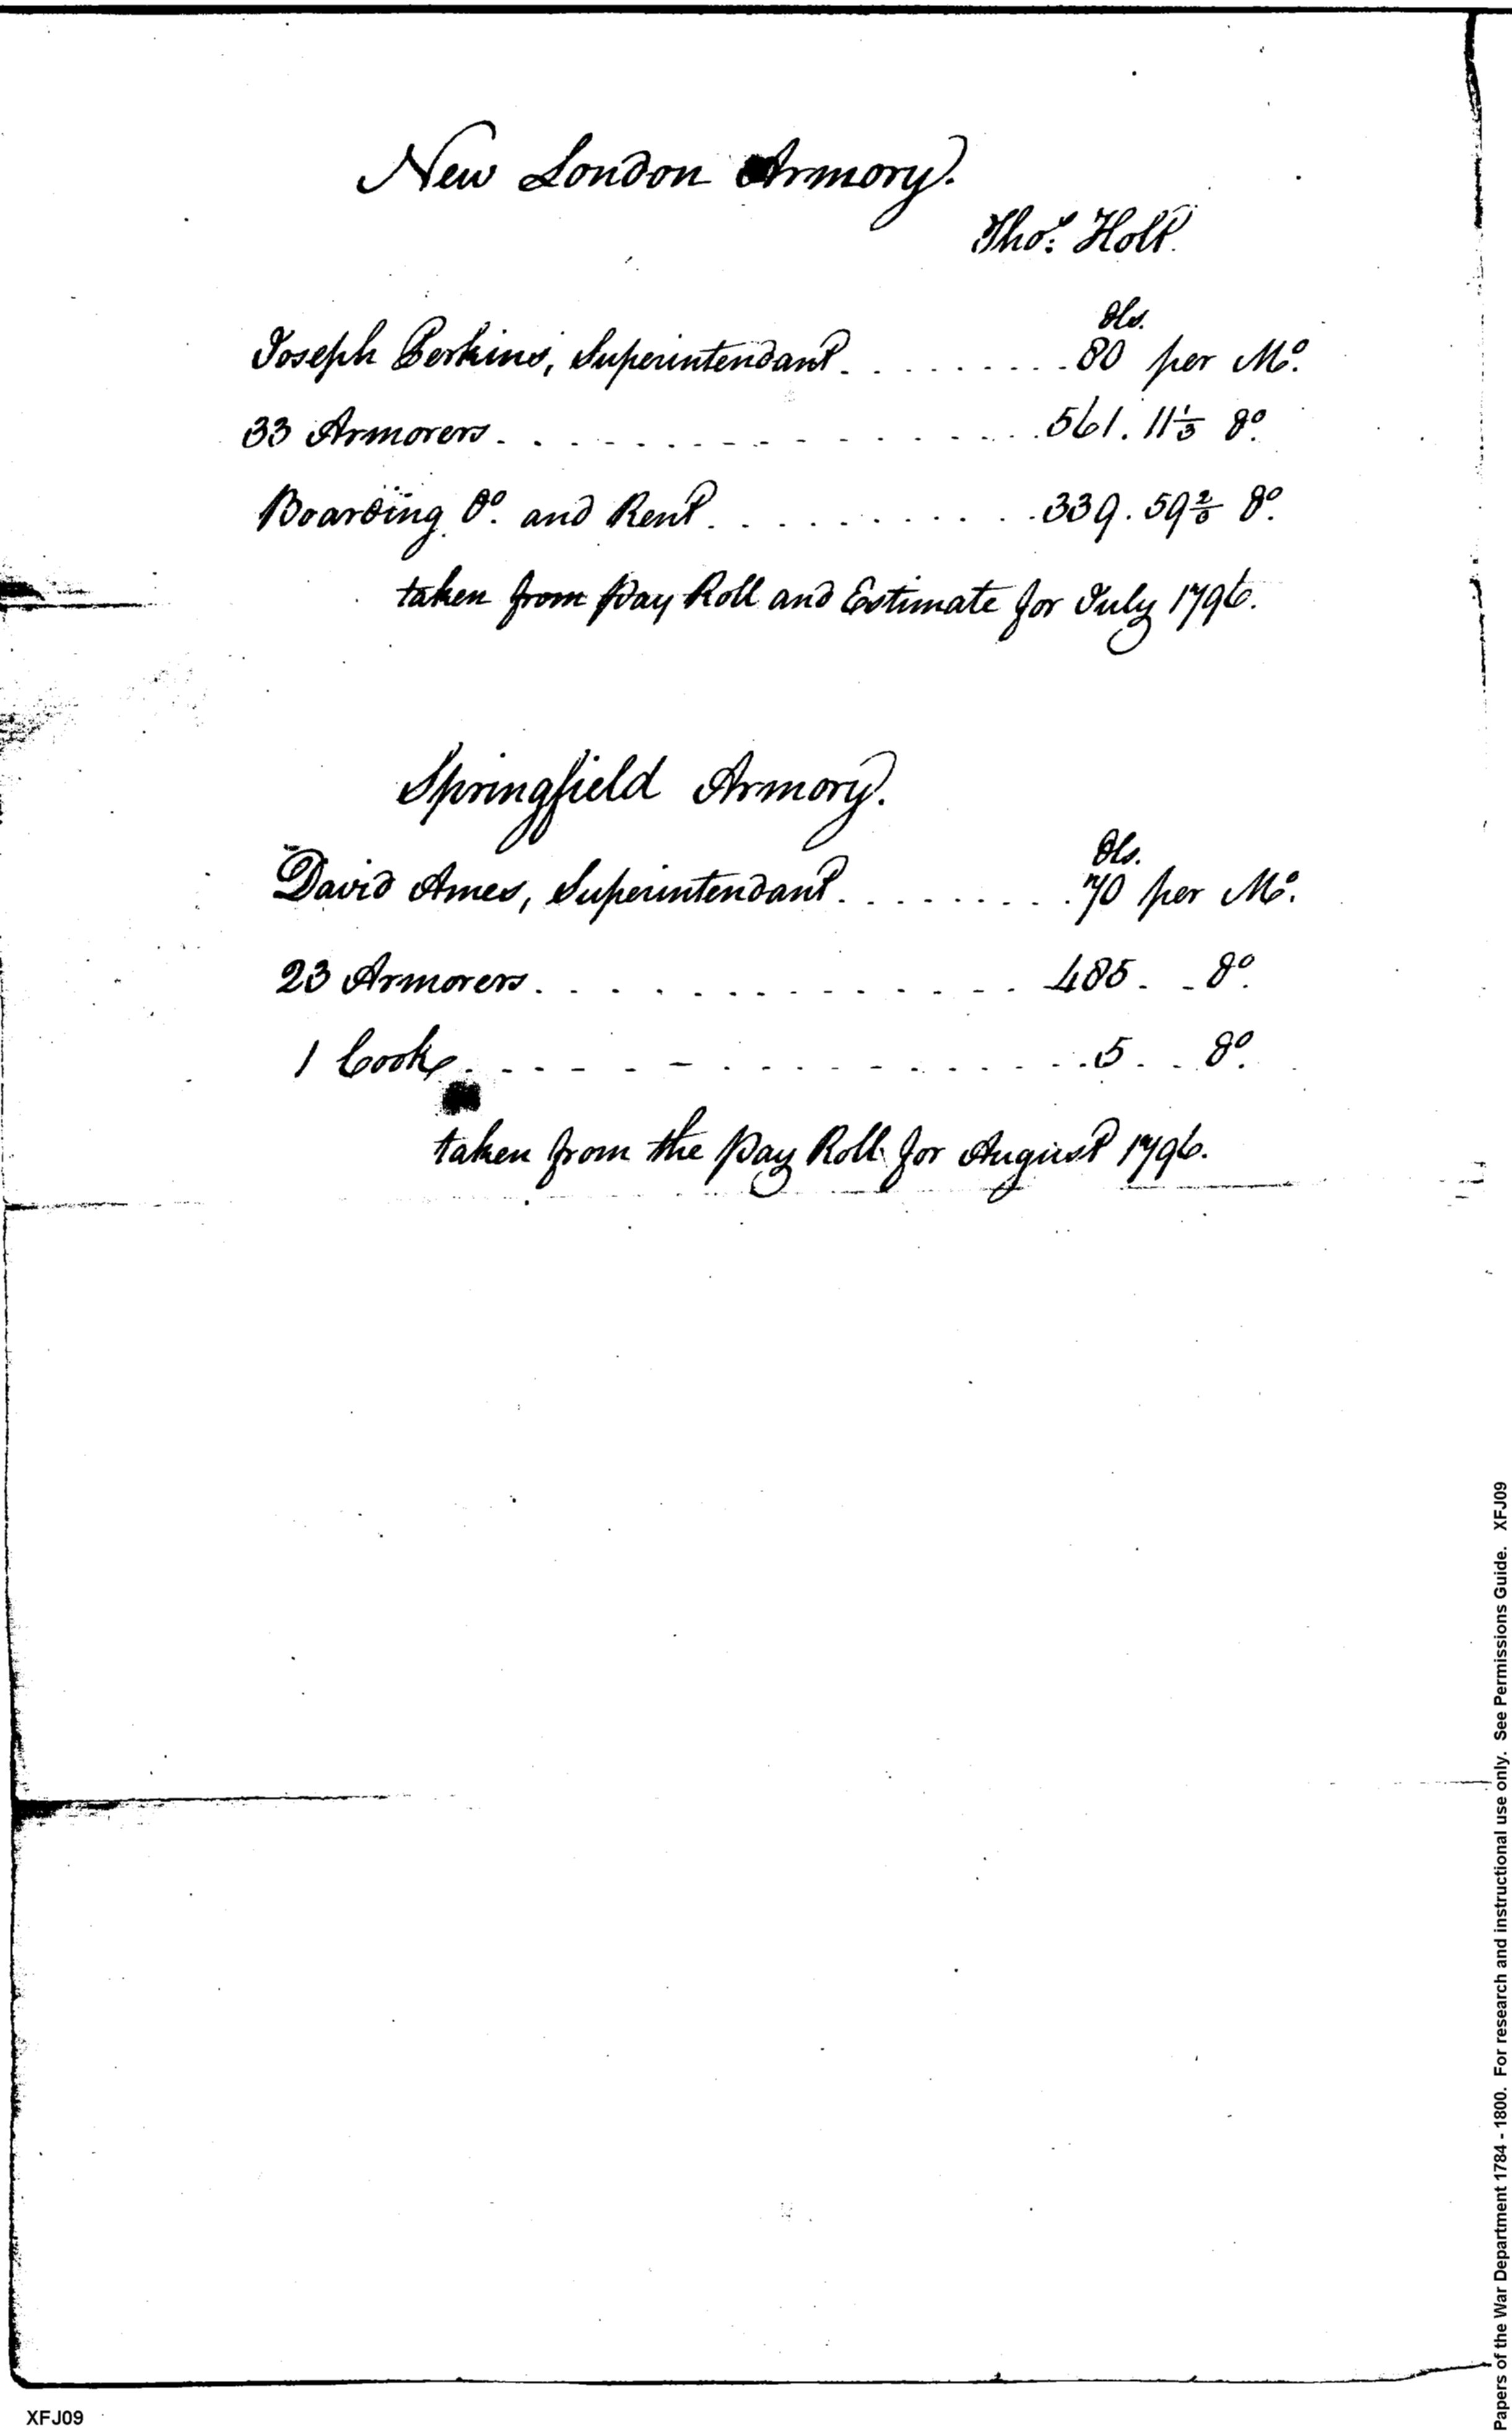 New London Armory.
Thos. Holt.
Dls.
Joseph Perkins, Superintendant. . . . . . . . . 80 per Mo.
33 Armorers. . . . . . . . . . . . . . . . 561. 11 1/3 Do.
Boarding Do. and Rent. . . . . . . . . . . 339. 59 2/3 Do.
taken from Pay Roll and Estimate for July 1796.
Springfield Armory.
Dls.
David Ames, Superintendant. . . . . . . . 70 per Mo.
23 Armorers. . . . . . . . . . . . . . . 485. . Do.
1 Cook. . . . . . . . . . . . . . . . . . 5. . Do.
taken from the Pay Roll for August 1796.
Papers of the War Department 1784 - 1800. For research and instructional use only. See Permissions Guide. XFJ09
XFJ09